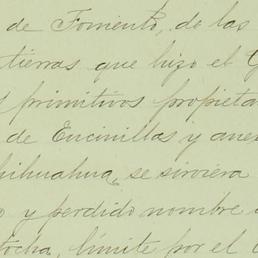 de Fomento, de las
tierras que hizo el G
primitivos propieta
de Encinillas y anex
hihuahua, se sirviera
y perdido nombre
tocha, límite por el